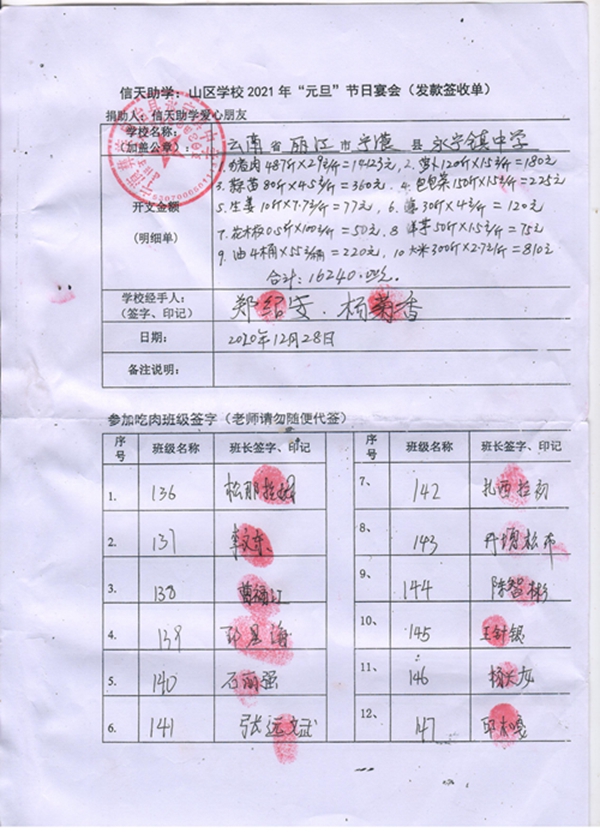 信天助学：山区学校2021年“元旦”节日宴会（发款签收单）
捐助人：信天助学爱心朋友
学校名称：
（加盖公章）：
云南省丽江市宁蒗县永宁镇中学
开支金额
（明细单）
1.猪肉487斤×29元/斤=14123元，2.萝卜120斤×1.5元/斤=180元
3.蒜苗80斤×4.5元/斤=360元. 4.包包菜150斤×1.5元/斤=225元
5.生姜10斤×7.7元/斤=77元，6.葱30斤×4元/斤=120元
7.花木板0.5斤×100元/斤=50元，8洋芋50斤×1.5元/斤=75元
9.油4桶×55元/桶=220元，10大米300斤×2.7元/斤=810元
合计：16240.00元.
学校经手人：
（签字、印记）
郑绍安.杨菊香
日期：
2020年12月28日
备注说明：
参加吃肉班级签字（老师请勿随便代签）
序号 班级名称 班长签字、印记 序号 班级名称 班长签字、印记
1. 136 松那拉姆 7、 142 扎西拉初
2. 137 李文东 8、 143 丹增松布
3. 138 曹福江 9、 144 陈智彬
4. 139 海 10、 145 王针银
5. 140 石丽强 11、 146 杨天友
6. 141 张远文武 12、 147 邱木嘎